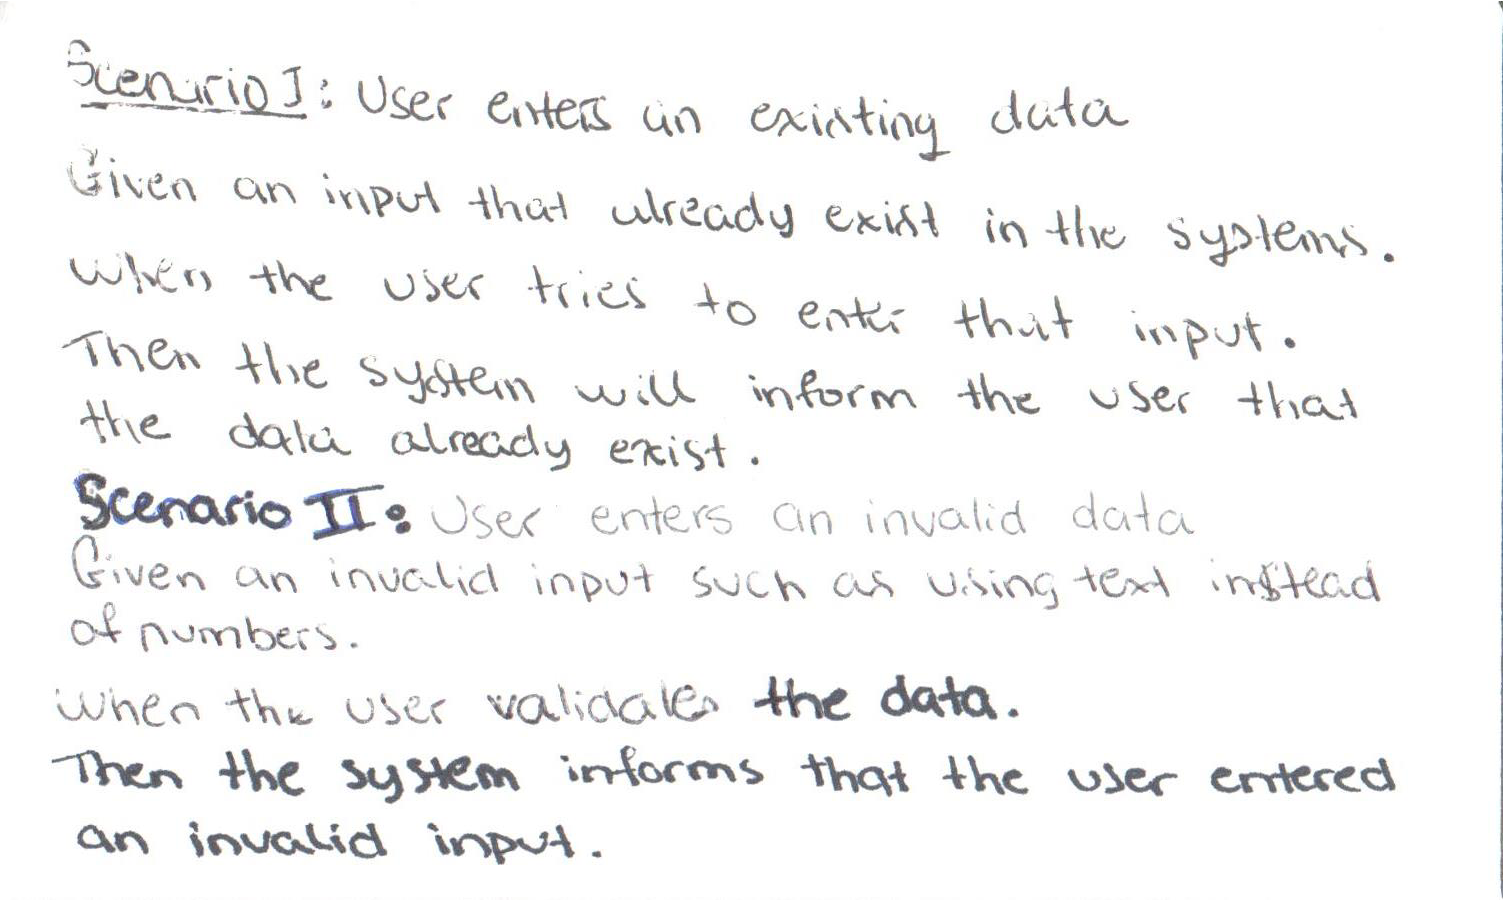 Scenario I: User enters an existing data
Given an input that already exist in the systems.
When the user tries to enter that input.
Then the system will inform the user that
the data already exist.
Scenario II: User enters an invalid data
Given an invalid input such as using text instead
of numbers.
When the user validates the data.
Then the system informs that the user entered
an invalid input.